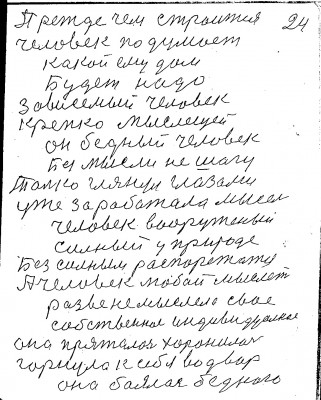 Прежде чем строится 24
человек подумает
какой ему дом
Будет надо
Зависемый человек
Крепко мыслещей
он бедный человек
Без мысли не шагу
Только глянул глазами
уже заработала мысел
человек вооруженый
силный у природе
Без силным распоретат
А человек тобой мыслет
разве не мыслело свое
собственное индивидуалное
она пряталас хоронилас
горнула к себя во двор
она боялас бедного